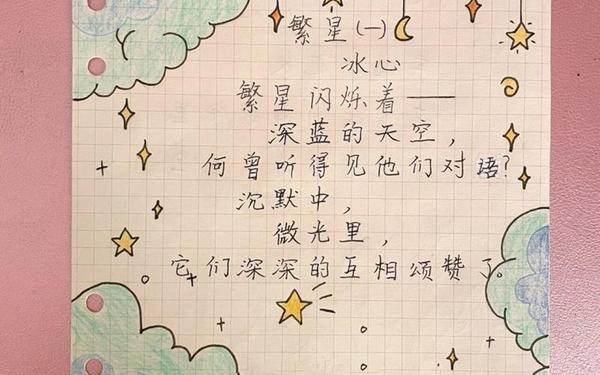 繁星(一)
冰心
繁星闪烁着——
深蓝的天空，
何曾听得见他们对语？
沉默中，
微光里，
它们深深的互相颂赞了。